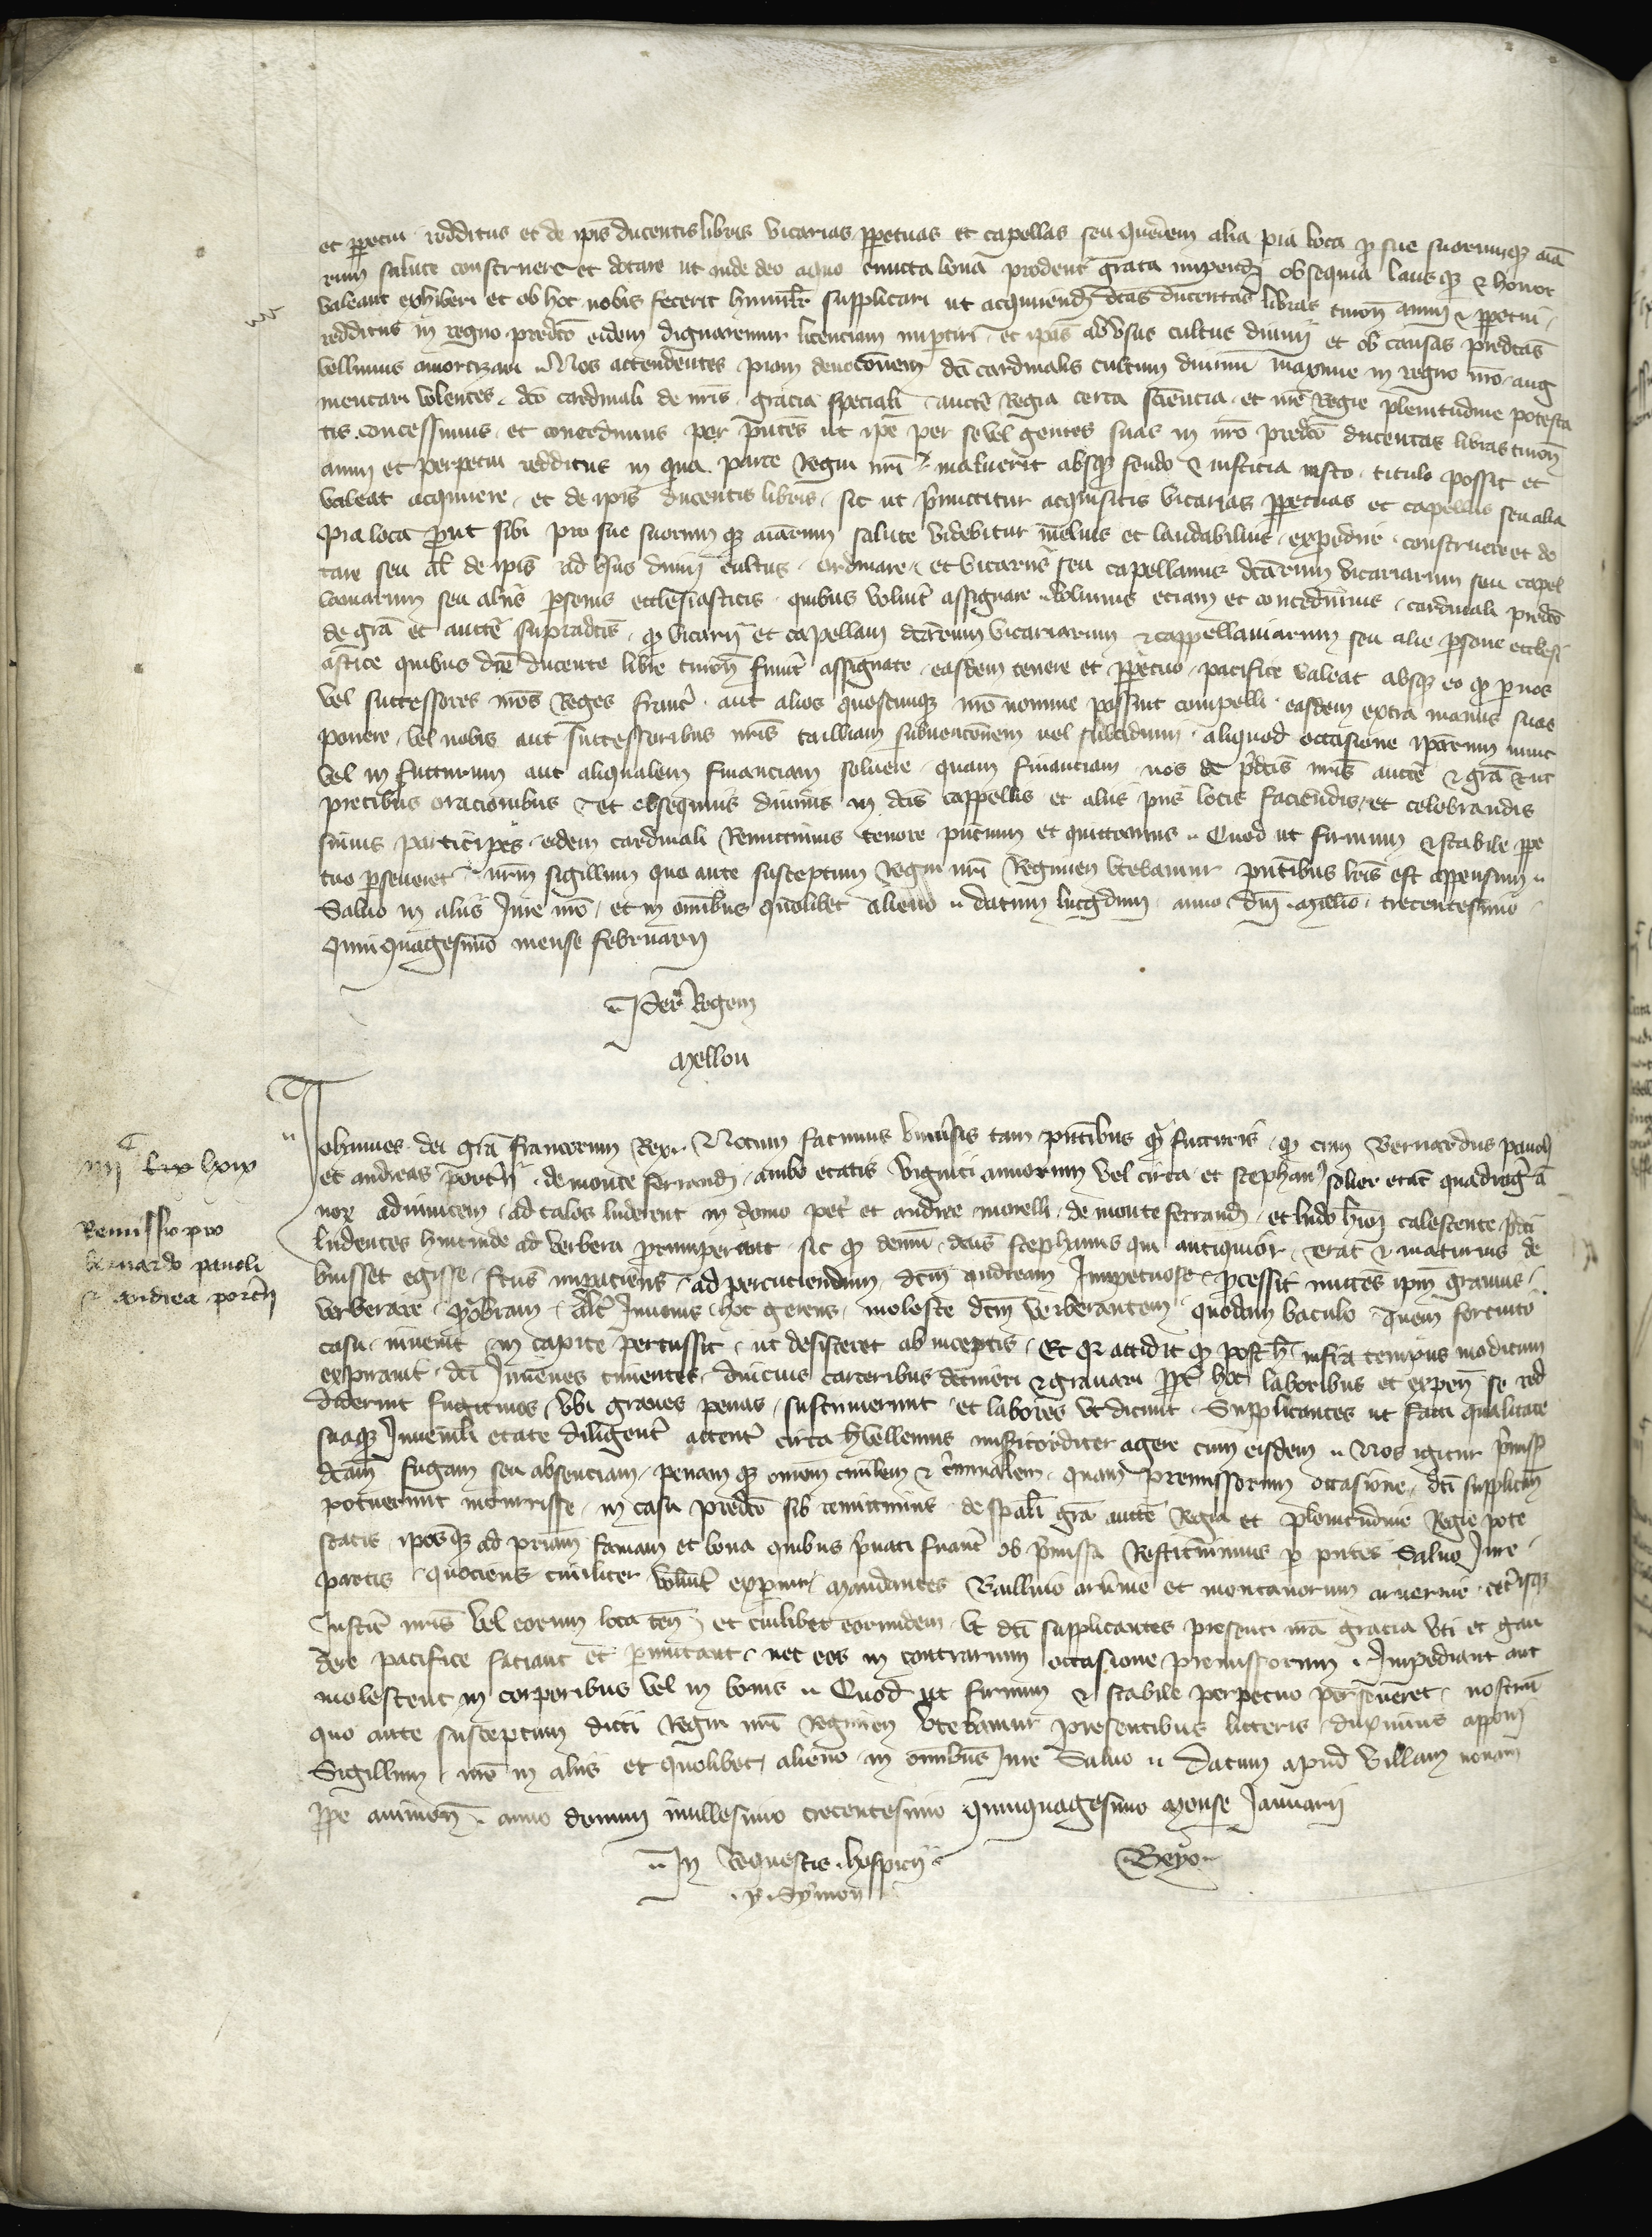 et ppetui redditus et de ipis ducentis libris vicarias ppetuas et capellas seu quedem alia pia loca p sue suorumque aia
rum salute construere et dotare ut inde deo a quo cuncta bona prodeunt grata impendi obsequia laus que et honor
valeant exhiberi et ob hoc nobis fecerit humilit supplicari ut acquirendi dictas ducentas libras turon annui et ppetui
redditus in regno predco eidem dignaremur licenciam impartiri et ipas ad usus cultus divini et ob causas predctas
vellemus amortizari Nos attendentes piam devocionem dci cardinalis cultum divinum maxime in regno nro aug
mentari volentes dco cardinali de nris gracia speciali aucte Regia certa sciencia et nre Regie plenitudine potesta
tis concessimus et concedimus per pntes ut ipe per se vel gentes suas in nro predco ducentas libras turon
annui et perpetui redditus in qua parte Regni nri maluerit absque feudo et iusticia iusto titulo possit et
valeat acquirere et de ipis ducentis libris sic ut pmittitur acquisitis vicarias ppetuas et capellas seu alia
pia loca put sibi pro sue suorum que aiarum salute videbitur melius et laudabilius expedire construere et do
tare seu al de ipis ad usus divini cultus ordinare et vicariis seu capellanis dcarum vicariarum seu capel
laniarum seu aliis psonis ecclesiasticis quibus voluit assignare Volumus eciam et concedimus cardinali predco
de gra et aucte supradcis q vicarii et capellani dcarum vicariarum et cappellaniarum seu alie psone ecclesi
astice quibus dce ducente libre turon fuint assignate easdem tenere et ppetuo pacifice valeat absque eo q p nos
vel successores nros Reges franc aut alios quoscunque nro nomine possint compelli easdem extra manus suas
ponere vel nobis aut successoribus nris tailliam subvencionem vel subsidium aliquod occasione ipsarum nunc
vel in futurum aut aliqualem financiam solvere quam financiam nos de pdctis nris aucte et gra et ut
precibus oracionibus et obsequiis divinis in dcis cappellis et aliis piis locis faciendis et celebrandis
simus participes eidem cardinali Remittimus tenore pncium et quittamus Quod ut firmum et stabile ppe
tuo pseveret nrm sigillum quo ante susceptum Regni nri Regimen utebamur pntibus lris est appensum
Salvo in aliis Jure nro et in omibus quolibet alieno datum lugdun anno dni millo trecentesimo
Quinquagesimo mense februarii
Per Regem
Mellou
Johannes dei gra francorum Rex Notum facimus universis tam pntibus q futuris q cum Bernardus panoli
et andreas porterii de monte ferrandi ambo etatis viginti annorum vel circa et stephan solier etat quadraginta
nor adinvicem ad talos luderent in domo pet et andree morelli de monteferrandi et ludo hmoi calescente pdci
ludentes hincinde ad verbera prumperent sic q demu dcus stephanus qui antiquior erat et maturius de
buisset egisse fcus impaciens ad percuciendum dcm andream Impetuose pcessit nitens ipm gravius
verberare dcm verberantem quodam baculo quem fortuito
casu invenit in capite percussit ut desisteret ab inceptis Et q accidit q post h infra tempus modicum
expiravit dci Juvenes timentes carceribus detineri et gravari ppt hoc laboribus et expen se red
diderunt fugitivos ubi graves penas sustinuerunt et labores ut dicunt Supplicantes ut facti qualitate
suaque Juvenili etate diligent attent circa h vellemus misericorditer agere cum eisdem Nos igitur pmiss
dcam fugam seu absenciam penam que omnem civilem et criminalem quam premissorum occasione dci supplican
potuerunt incurrisse in casu predco sib remittimus de spali gra aucte Regia et plenitudine Regie pote
statis iposque ad priam famam et bona quibus pvati fuant ob pmissa Restituimus p pntes Salvo Jure
partis quociens civiliter voluit expiri Mandantes Baillivo arvnie et montanorum arvernie cetisque
Justic nris vel eorum loca ten et cuilibet eorumdem ut dci supplicantes presenti nra gracia uti et gau
dere pacifice faciant et pmittant nec eos in contrarium occasione premissorum Impediant aut
molestent in corporibus vel in bonis Quod ut firmum et stabile perpetuo perseveret nostru
quo ante susceptum dicti Regni nri Regimen utebamur presentibus litteris duximus apponi
Sigillum nro in aliis et quolibet alieno in omibus Jure Salvo Datum apud villam novam
ppe avinion anno domini millesimo trecentesimo quinquagesimo Mense Januarii
In Requestis hospicii
P Symon
Remissio pro
bernardo panoli
et andrea porterii